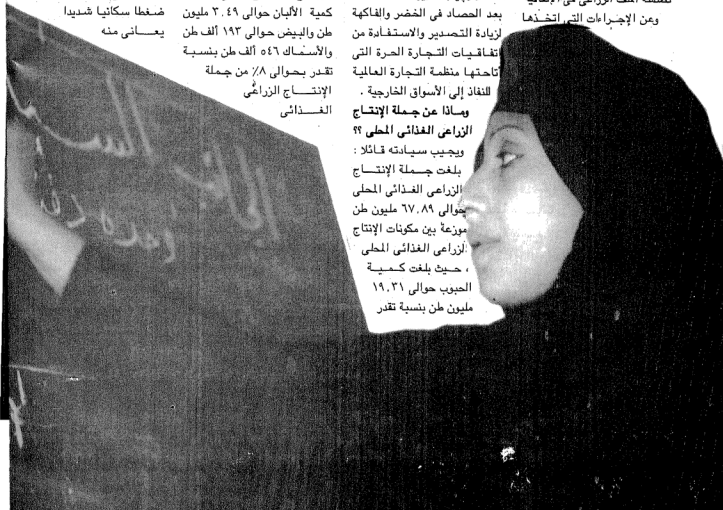 وعن الإجراءات التى اتخذها
بعد الحصاد فى الخضر والفاكهة
لزيادة التصدير والاستفادة من
اتفاقيات التجارة الحرة التى
أتاحتها منظمة التجارة العالمية
للنفاذ إلى الأسواق الخارجية .
وماذا عن جملة الإنتاج
الزراعى الغذائى المحلى ؟؟
ويجيب سيادته قائلا :
بلغت جملة الإنتاج
الزراعى الغذائى المحلى
حوالى ٦٧.٨٩ مليون طن
موزعة بين مكونات الإنتاج
الزراعى الغذائى المحلى
، حيث بلغت كمية
الحبوب حوالى ١٩.٣١
مليون طن بنسبة تقدر
كمية الألبان حوالى ٣.٤٩ مليون
طن والبيض حوالى ١٩٣ ألف طن
والأسماك ٥٤٦ ألف طن بنسبة
تقدر بحوالى ٨٪ من جملة
الإنتاج الزراعى
الغذائى
ضغطا سكانيا شديدا
يعانى منه